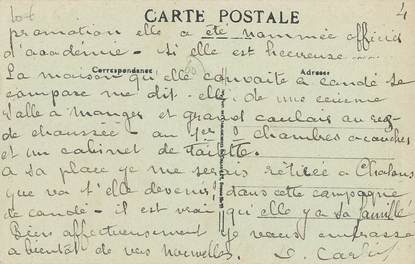 CARTE POSTALE
4
promotion elle a été nommée officier
d'académie - si elle est heureuse
Correspondance Adresse
La maison qu'elle convoite à candé se
compose me dit-elle de une cuisine
salle à manger et grand couloir au rez
de chaussée au 1er 3 chambres à coucher
et un cabinet de toilette.
à sa place je me serais retirée à Chalons
que va t'elle devenir dans cette campagne
de candé - il est vrai qu'elle y a sa famille
Bien affectueusement je vous embrasse
à bientôt de vos nouvelles.